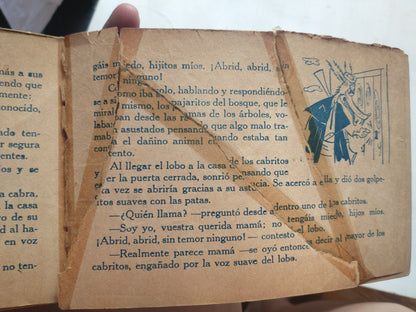 más a sus
iendo que
lmente:
conocido,
dado ten-
r segura
entes.
os y se
a cabra,
la casa
yo de su
d al ha-
en voz
no ten-
gáis miedo, hijitos míos. ¡Abrid, abrid, sin
temor ninguno!
solo, hablando y respondiéndo-
se a sí mismo, los pajaritos del bosque, que le
mira desde las ramas de los árboles, vo-
laban asustados pensando que algo malo tra-
el dañino animal cuando estaba tan
contento.
Al llegar el lobo a la casa de los cabritos
y ver la puerta cerrada, sonrió pensando que
esta vez se abriría gracias a su astucia. Se acercó a ella y dió dos golpe-
citos suaves con las patas.
—¿Quién llama? —preguntó desde adentro uno de los cabritos.
—Soy yo, vuestra querida mamá; no tengáis miedo, hijos míos.
¡Abrid, abrid, sin temor ninguno! —contestó el lobo.
—Realmente parece mamá —se oyó entonces decir al mayor de los
cabritos, engañado por la voz suave del lobo.